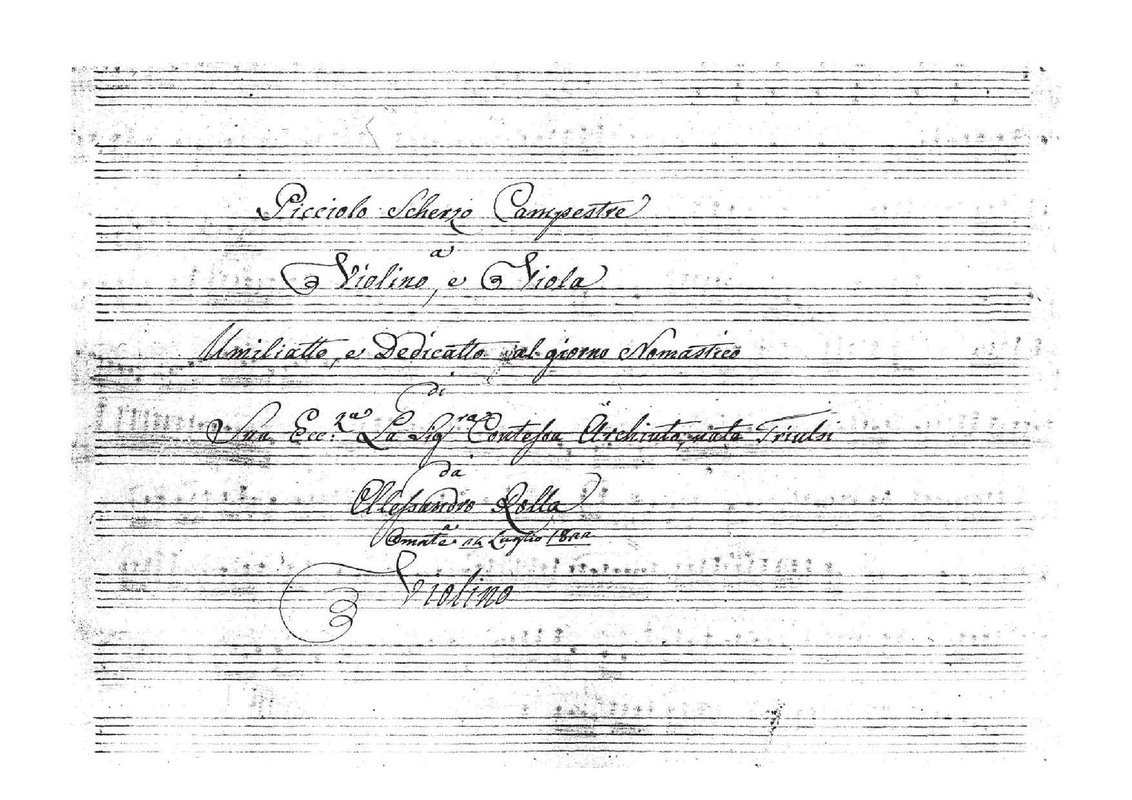 Picciolo Scherzo Campestre
a
Violino, e Viola
Umiliatto, e Dedicatto al giorno Nomastico
di
Sua Ecc:za La Sigra Contessa Archinto, nata Triulsi
da
Allessandro Rolla
Luglio
Violino